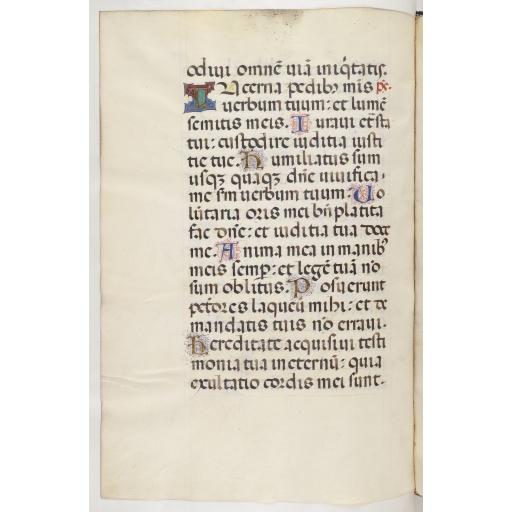 odiui omnē uiā iniq̄tatis.
Lucerna pedibꝰ m̄is ps̄.
uerbum tuum: et lumē
semitis meis. Iuraui et sta
tui: custodire iuditia iusti
tie tue. Humiliatus sum
usqꝫ quaqꝫ dn̄e uiuifica-
me sm̄ uerbum tuum: Uo
lūtaria oris mei bn̄placita
fac dn̄e: et iuditia tua doce
me. Anima mea in manibꝰ
meis semp̱: et legē tuā nō
sum oblitus. Posuerunt
pctōres laqueū mihi: et de
mandatis tuis nō erraui.
Hereditate acquisiui testi
monia tua in eternū: quia
exultatio cordis mei sunt.